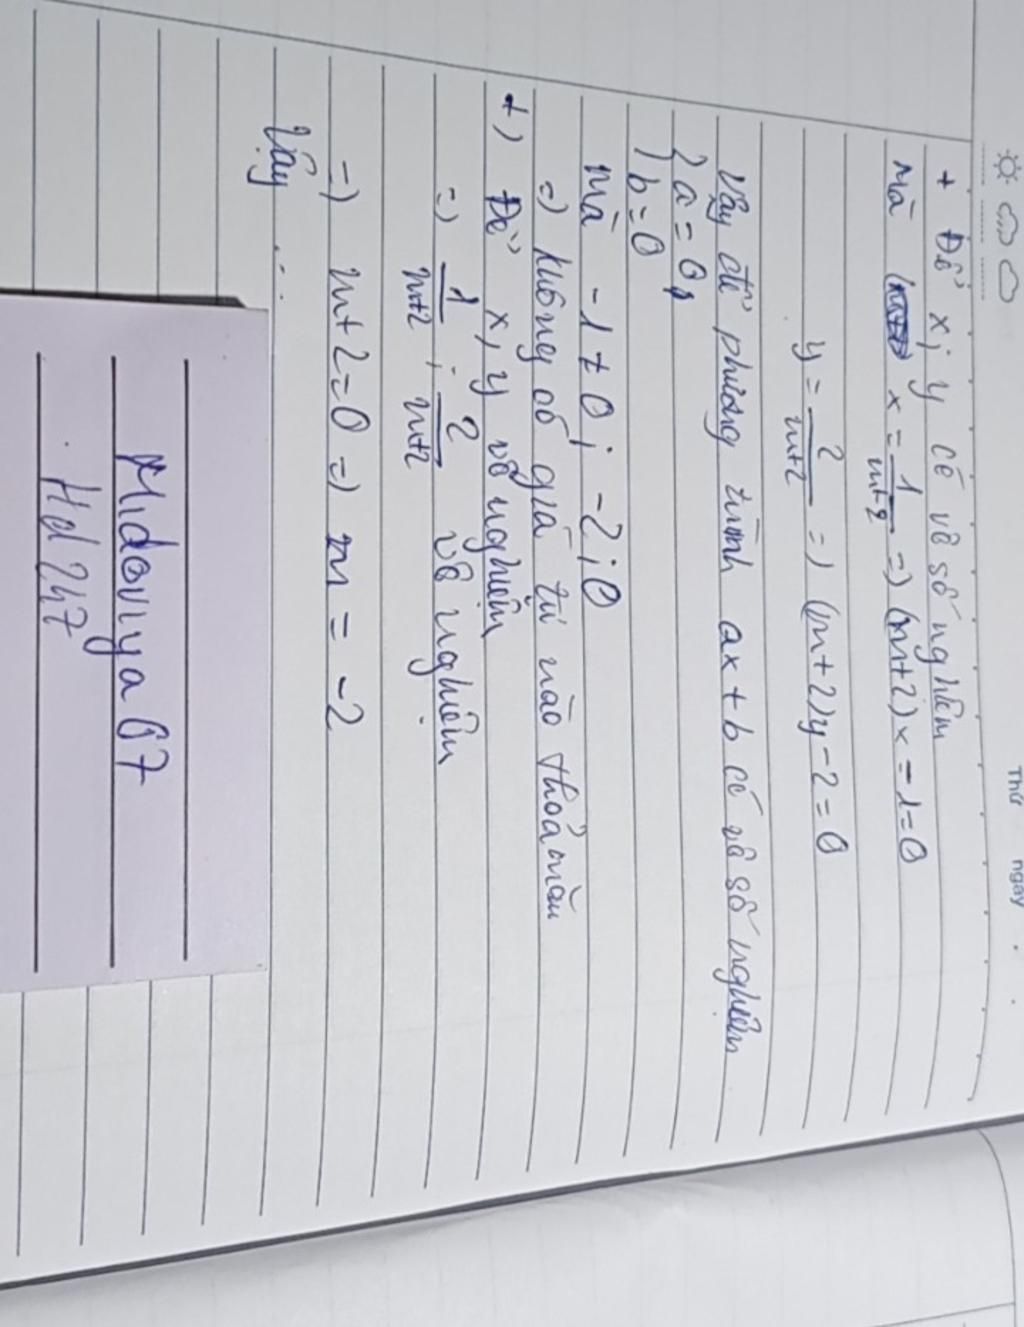 Thứ ngày
+ Để x; y có vô số nghiệm
Mà x = 1/m+2 => (m+2)x - 1 = 0
y = 2/m+2 => (m+2)y - 2 = 0
Vậy để phương trình ax + b có vô số nghiệm
{ a = 0
b = 0
Mà -1 ≠ 0; -2; 0
=> không có giá trị nào thoả mãn
+) Để x, y vô nghiệm
=> 1/m+2 ; 2/m+2 vô nghiệm
=> m+2 = 0 => m = -2
Vậy ...
Midoriya07
Hd247